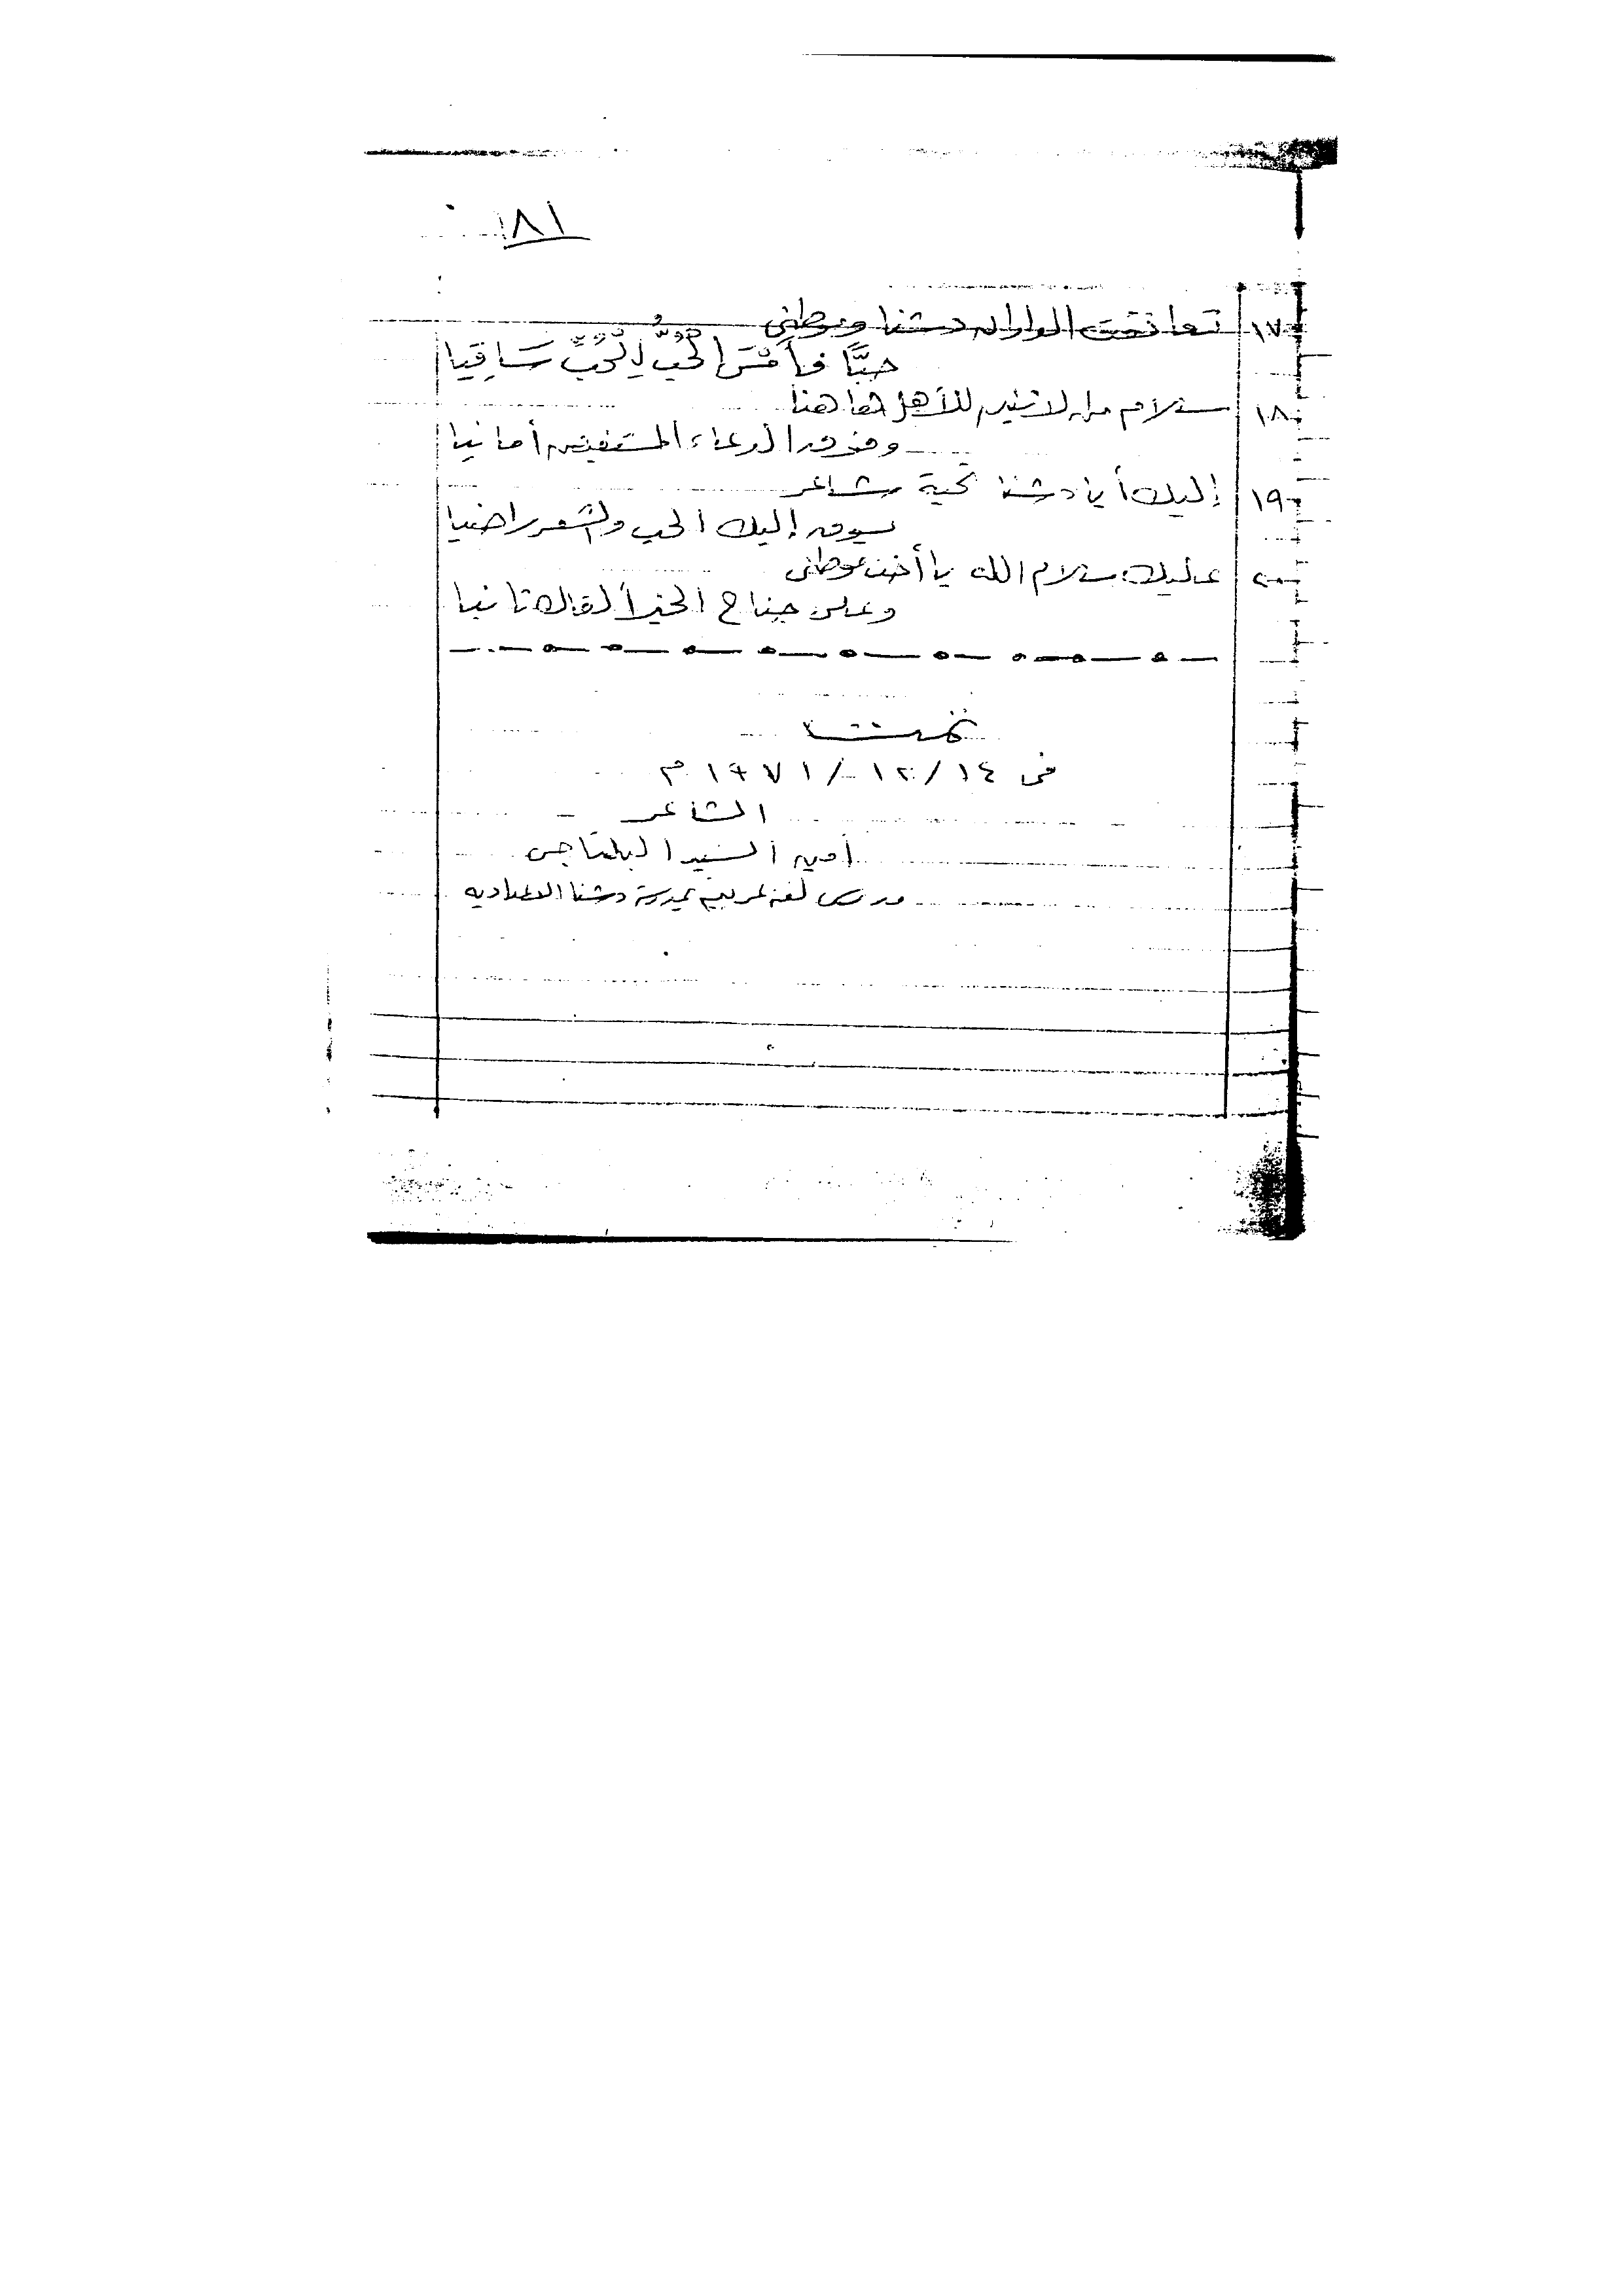 ١٨١
١٧- تعانقت الداران دشنا وموطني
حبًّا فأَمْسَى الحُبُّ لِلْحُبِّ سَاقِيا
١٨- سلام من الاثنين للأهل ها هنا
ومن الدعاء المستفيض أمانيا
١٩- إليك أيا دشنا تحية شاعر
يسوق إليك الحب والشعر راضيا
٢٠- عليك سلام الله يا أخت موطني
وعلى جناح الخير ألقاك ثانيا
تمت
في ١٤ / ١٢ / ١٩٧١ م
الشاعر
أمين السيد البلتاجي
مدرس لغة عربية بمدرسة دشنا الاعدادية